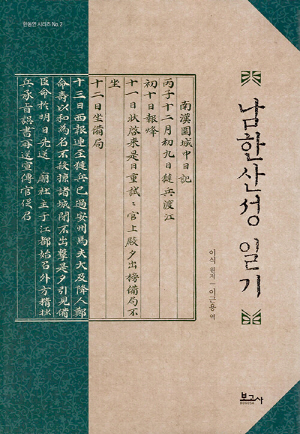 한동연 시리즈 No.7
남한산성 일기
이식 원저 - 이근용 역
南漢圍城中日記
丙子十二月初九日鍉兵渡江
初十日報烽
十一日狀啓來是日重試官上殿夕出榜備局不
坐
十二日坐備局
十三日西報連至鍉兵已過安州馬夫大及降人鄭
命壽以和為名不殺掠諸城閉不出擊是夕引見備
臣命於明日先送廟社主于江都始召外方精抄
兵承旨招書分送宣傳官促召
보고사